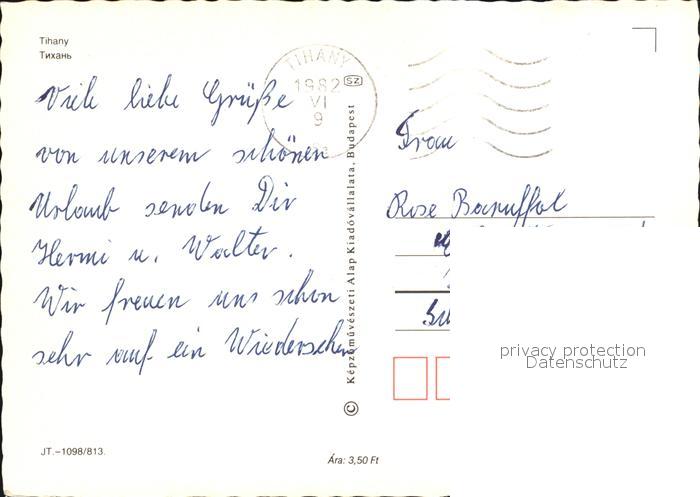 Tihany
Тихань
TIHANY
1982
VI
9
SZ
Viele liebe Grüße
von unserem schönen
Urlaub senden Dir
Hermi u. Walter.
Wir freuen uns schon
sehr auf ein Wiedersehen
© Képzőművészeti Alap Kiadóvállalata, Budapest
Frau
Rose
privacy protection
Datenschutz
JT.–1098/813.
Ára: 3,50 Ft